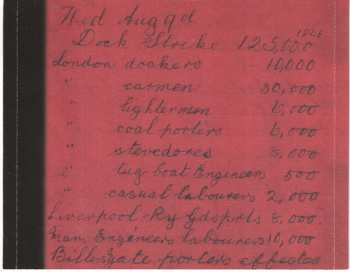 Wed Aug 9d
1911
Dock Strike 125,000
London dockers 10,000
" carmen 30,000
" lightermen 6,000
" coal porters 6,000
" stevedores 5,000
" tug boat Engineers 500
" casual labourers 2,000
Liverpool Ry Gdsprts 8,000
Engineers labourers 10,000
Billingsgate porters affected